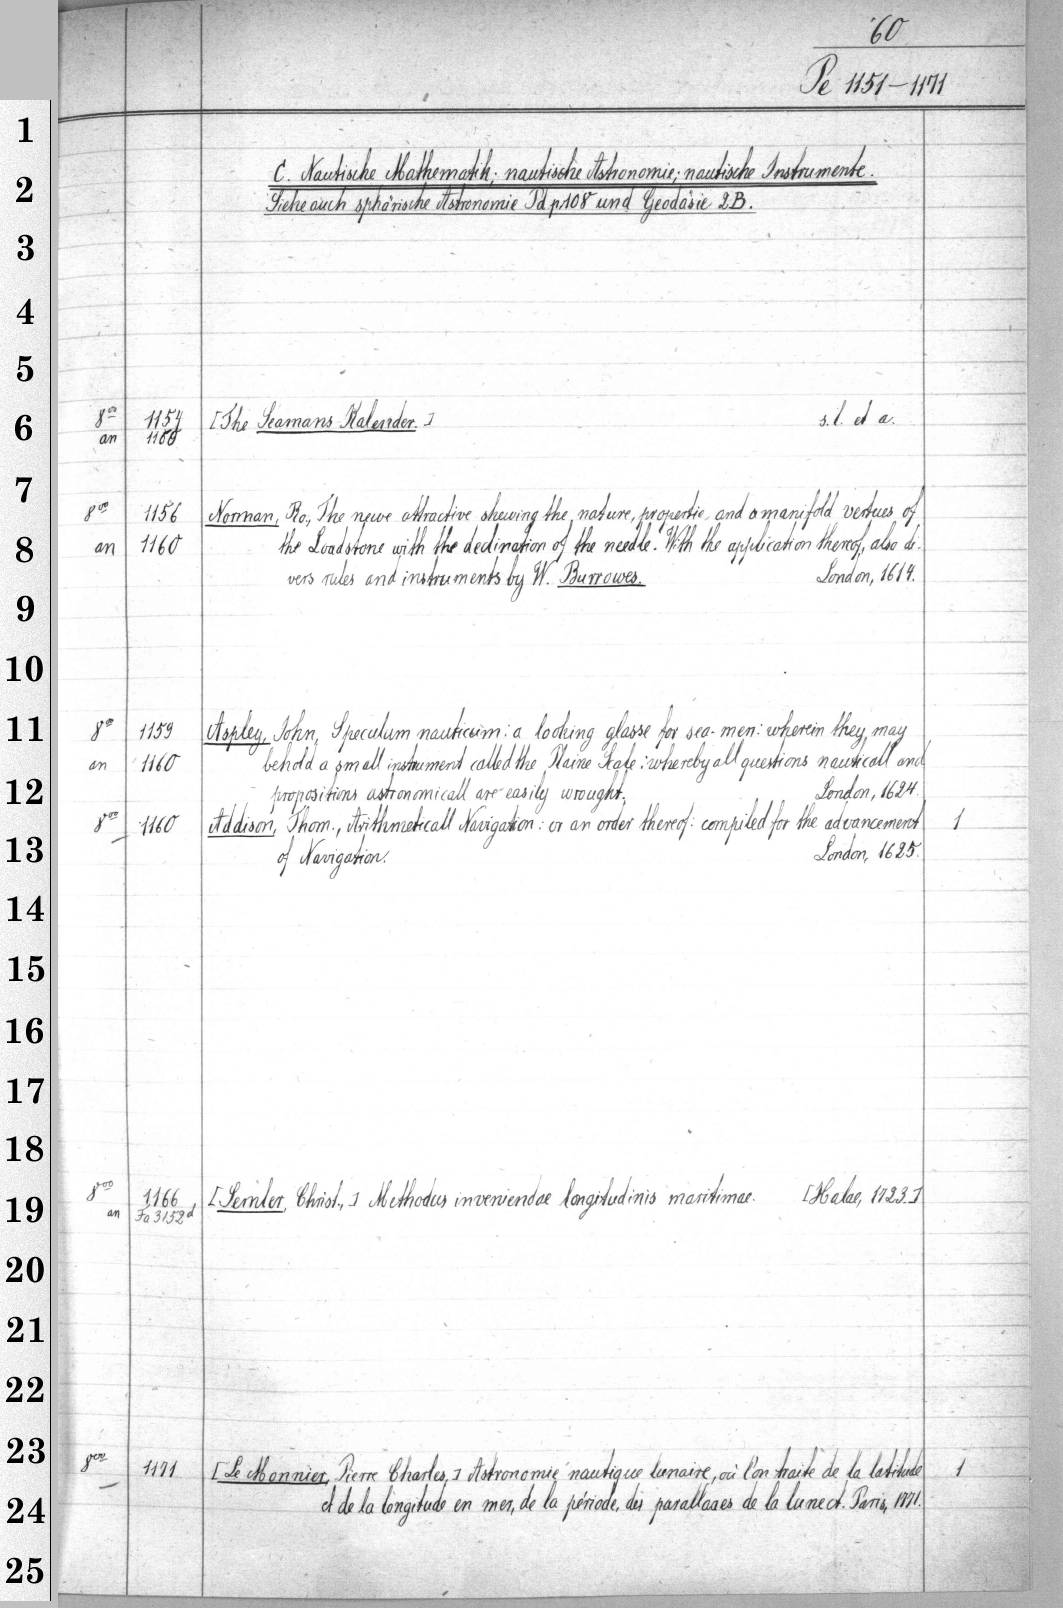 60
Pe 1151-1171
C. Nautische Mathematik; nautische Astronomie; nautische Instrumente.
Siehe auch sphärische Astronomie Pd p. 108 und Geodäsie 2B.
1
2
3
4
5
6
7
8
9
10
11
12
13
14
15
16
17
18
19
20
21
22
23
24
25
8vo 1154 [The Seamans Kalender.] s.l. et a.
an 1160
8vo 1156 Norman, Ro., The newe attractive shewing the nature, propertie, and manifold vertues of
an 1160 the Loadstone with the declination of the needle. With the application thereof, also di-
vers rules and instruments by W. Burrowes. London, 1614.
8vo 1159 Aspley, John, Speculum nauticum: a looking glasse for sea-men: wherein they may
an 1160 behold a small instrument called the Plaine Skale: whereby all questions nauticall and
propositions astronomicall are easily wrought. London, 1624.
8vo 1160 Addison, Thom., Arithmeticall Navigation: or an order thereof: compiled for the advancement 1
— of Navigation. London, 1625.
8vo 1166 [Semler, Christ.,] Methodus inveniendae longitudinis maritimae. [Halae, 1723.]
an Fa 3152d
8vo 1171 [Le Monnier, Pierre Charles,] Astronomie nautique lunaire, où l'on traite de la latitude 1
— et de la longitude en mer, de la période, des parallaxes de la lune ct. Paris, 1771.